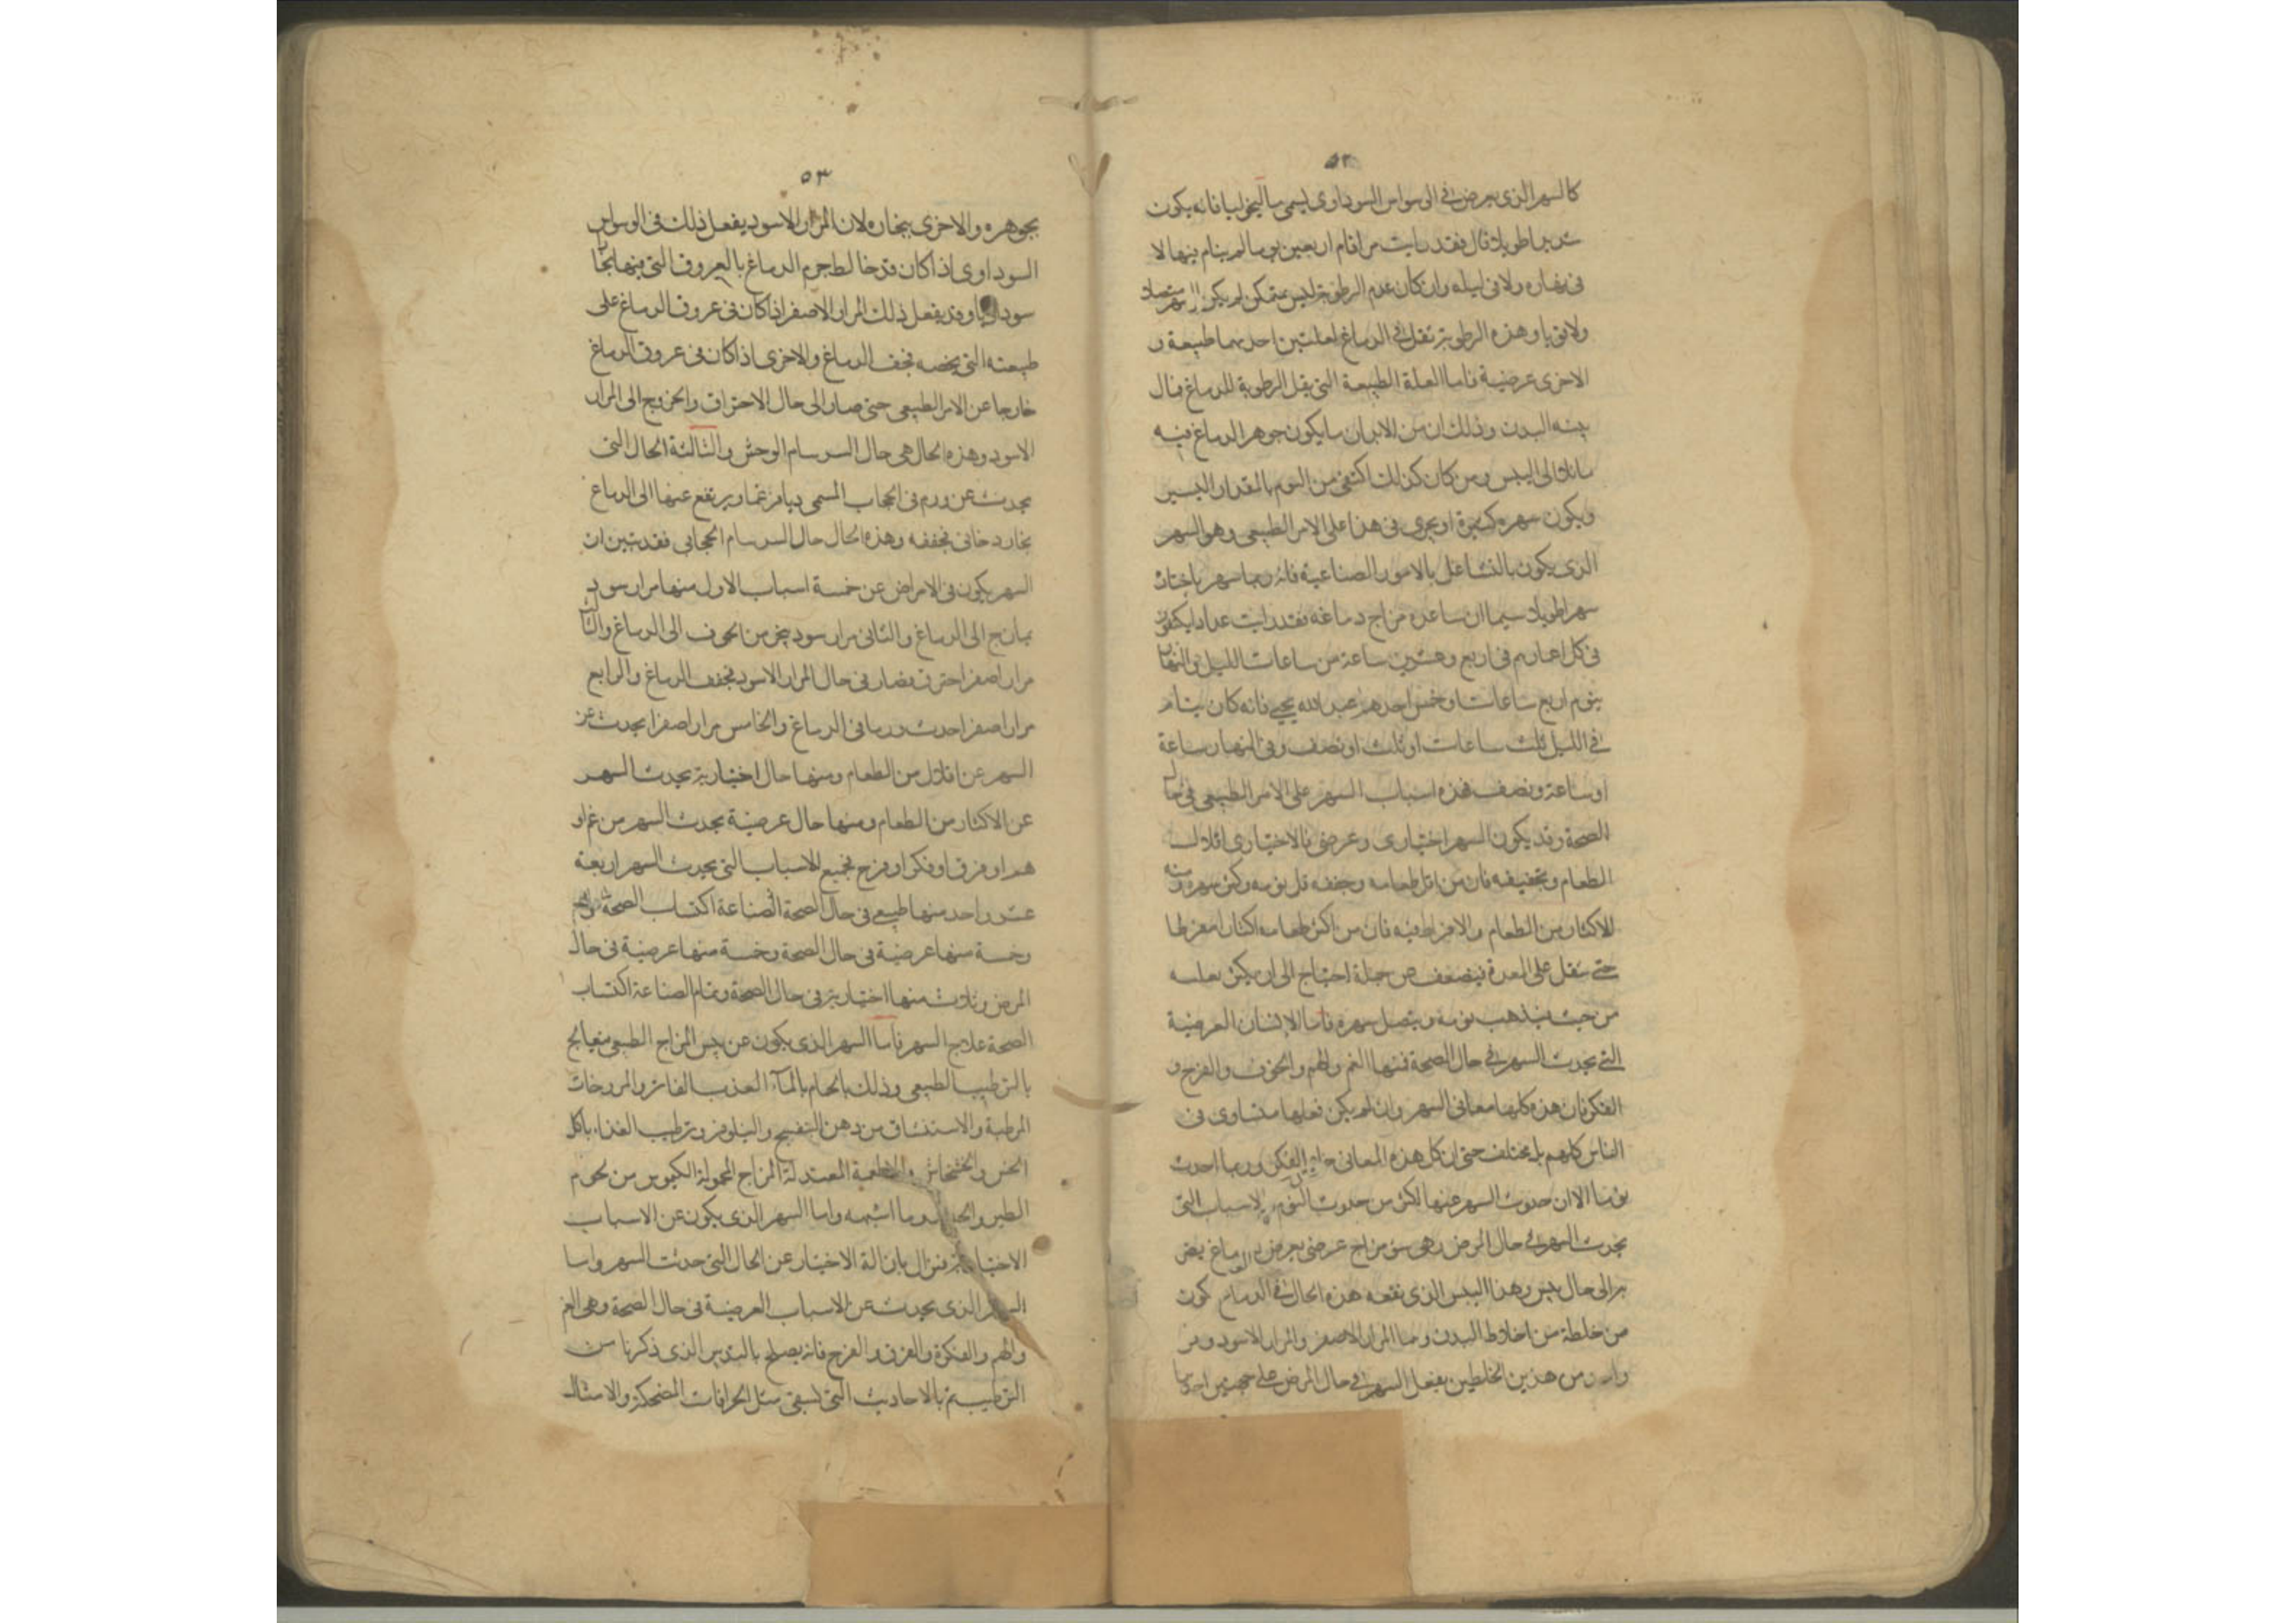 ٥٢
كالسهر الذى يعرض فى الوسواس السوداوى يسمى ماليخوليا فانه يكون
شديدا طويلا قال فقد رايت من اقام اربعين يوما لم ينام فيها لا
فى نهاره ولا فى ليله وان كان عدم الرطوبة ليس بمتمكن لم يكن السهر متصلا
ولا قويا وهذه الرطوبة تقل فى الدماغ لعلتين احديهما طبيعة و
الاخرى عرضية فاما العلة الطبيعة التى يقل الرطوبة للدماغ فال
بينه البدن وذلك ان من الابدان ما يكون جوهر الدماغ فيه
مائلا الى اليبس ومن كان كذلك اكتفى من النوم بالمقدار اليسير
ويكون سهره كثيرة او يجرى فى هذا على الامر الطبيعى وهو السهر
الذى يكون بالتشاغل بالامور الصناعية فانه ربما سهر باختيار
سهرا طويلا سيما ان ساعده مزاج دماغه فقد رايت عدادا يكتفون
فى كل اعمارهم فى اربع وعشرين ساعة من ساعات الليل والنهار
بنوم اربع ساعات او خمس احدهم عبد الله يحيى فانه كان ينام
فى الليل ثلث ساعات او ثلث او نصف وفى النهار ساعة
او ساعة ونصف فهذه اسباب السهر على الامر الطبيعى فى حال
الصحة وقد يكون السهر اختيارى وعرضى فالاختيارى اقلال
الطعام وتجفيفه فان من اقل طعامه وجففه قل نومه وكثر سهره ومنه
الاكثار من الطعام والافراط فيه فان من اكثر طعامه اكثارا مفرطا
حتى يثقل على المعدة فيضعف عن حمله احتاج الى ان يكثر تململه
من حيث يذهب نومه ويتصل سهره فاما الانسان العرضية
التى يحدث السهر فى حال الصحة فمنها الغم والهم والخوف والفرح و
الفكر فان هذه كلها معانى السهر وان لم يكن فعلها متساوى فى
الناس كلهم بل مختلف حتى ان كل هذه المعانى الفكر وربما احدث
نوما الا ان حدوث السهر عنها اكثر من حدوث النوم الاسباب التى
يحدث السهر فى حال المرض وهى سوء مزاج عرضى يعرض الدماغ يصير
بر الى حال يبس وهذا اليبس الذى تقعه هذه الحال فى الدماغ يكون
من خلطة من اخلاط البدن وهما المرار الاصفر والمرار الاسود و
من هذين الخلطين يفعل السهر فى حال المرض على جهتين احديهما
٥٣
بجوهره والاخرى ببخاره لان المرار الاسود يفعل ذلك فى الوسواس
السوداوى اذا كان قد خالط جرم الدماغ بالعروق التى فيها بخارا
سوداويا وقد يفعل ذلك المرار الاصفر اذا كان فى عروق الدماغ على
طبيعته التى يخصه فجفف الدماغ والاخرى اذا كان فى عروق الدماغ
خارجا عن الامر الطبيعى حتى صار الى حال الاحتراق والخروج الى المرار
الاسود وهذه الحال هى حال السرسام الوحش والثالثة الحال التى
يحدث عن ورم فى الحجاب المسمى ديافرغما ويرتفع عنها الى الدماغ
بخار دخانى فجففه وهذه الحال حال السرسام الحجابى فقد تبين ان
السهر يكون فى الامراض عن خمسة اسباب الاول منها مرار سود
يمازج الى الدماغ والثانى مرار سود يبخر من الجوف الى الدماغ والثالث
مرار اصفر احترق فصار فى حال المرار الاسود فجفف الدماغ والرابع
مرار اصفر احدث ورما فى الدماغ والخامس مرار اصفرا يحدث عن
السهر عن اقلال من الطعام ومنها حال اختيارية يحدث السهر
عن الاكثار من الطعام ومنها حال عرضية يحدث السهر من غم او
هم او فرق او فكر او فرح فجميع الاسباب التى يحدث السهر اربعة
عشر واحد منها طبيعى فى حال الصحة الصناعة اكتساب الصحة
وخمسة منها عرضية فى حال الصحة وخمسة منها عرضية فى حال
المرض وثلاث منها اختيارية فى حال الصحة وتمام الصناعة اكتساب
الصحة علاج السهر فاما السهر الذى يكون عن يبس المزاج الطبيعى فيعالج
بالترطيب الطبيعى وذلك بالحمام بالمآء العذب الفاتر والمروخات
المرطبة والاستنشاق من دهن البنفسج والنيلوفر وترطيب الغذاء باكل
الخس والخشخاش والاطعمة المعتدلة المزاج المحمولة الكيموس من لحوم
الطير والجدا وما اشبهه واما السهر الذى يكون عن الاسباب
الاختيارية فتزال بازالة الاختيار عن الحال التى حدثت السهر واما
السهر الذى يحدث عن الاسباب العرضية فى حال الصحة وهى الغم
والهم والفكرة والفرق والفرح فانه يصلح بالتدبير الذى ذكرنا من
الترطيب ثم بالاحاديث التى تسقى مثل الخرافات المضحكة والامثال